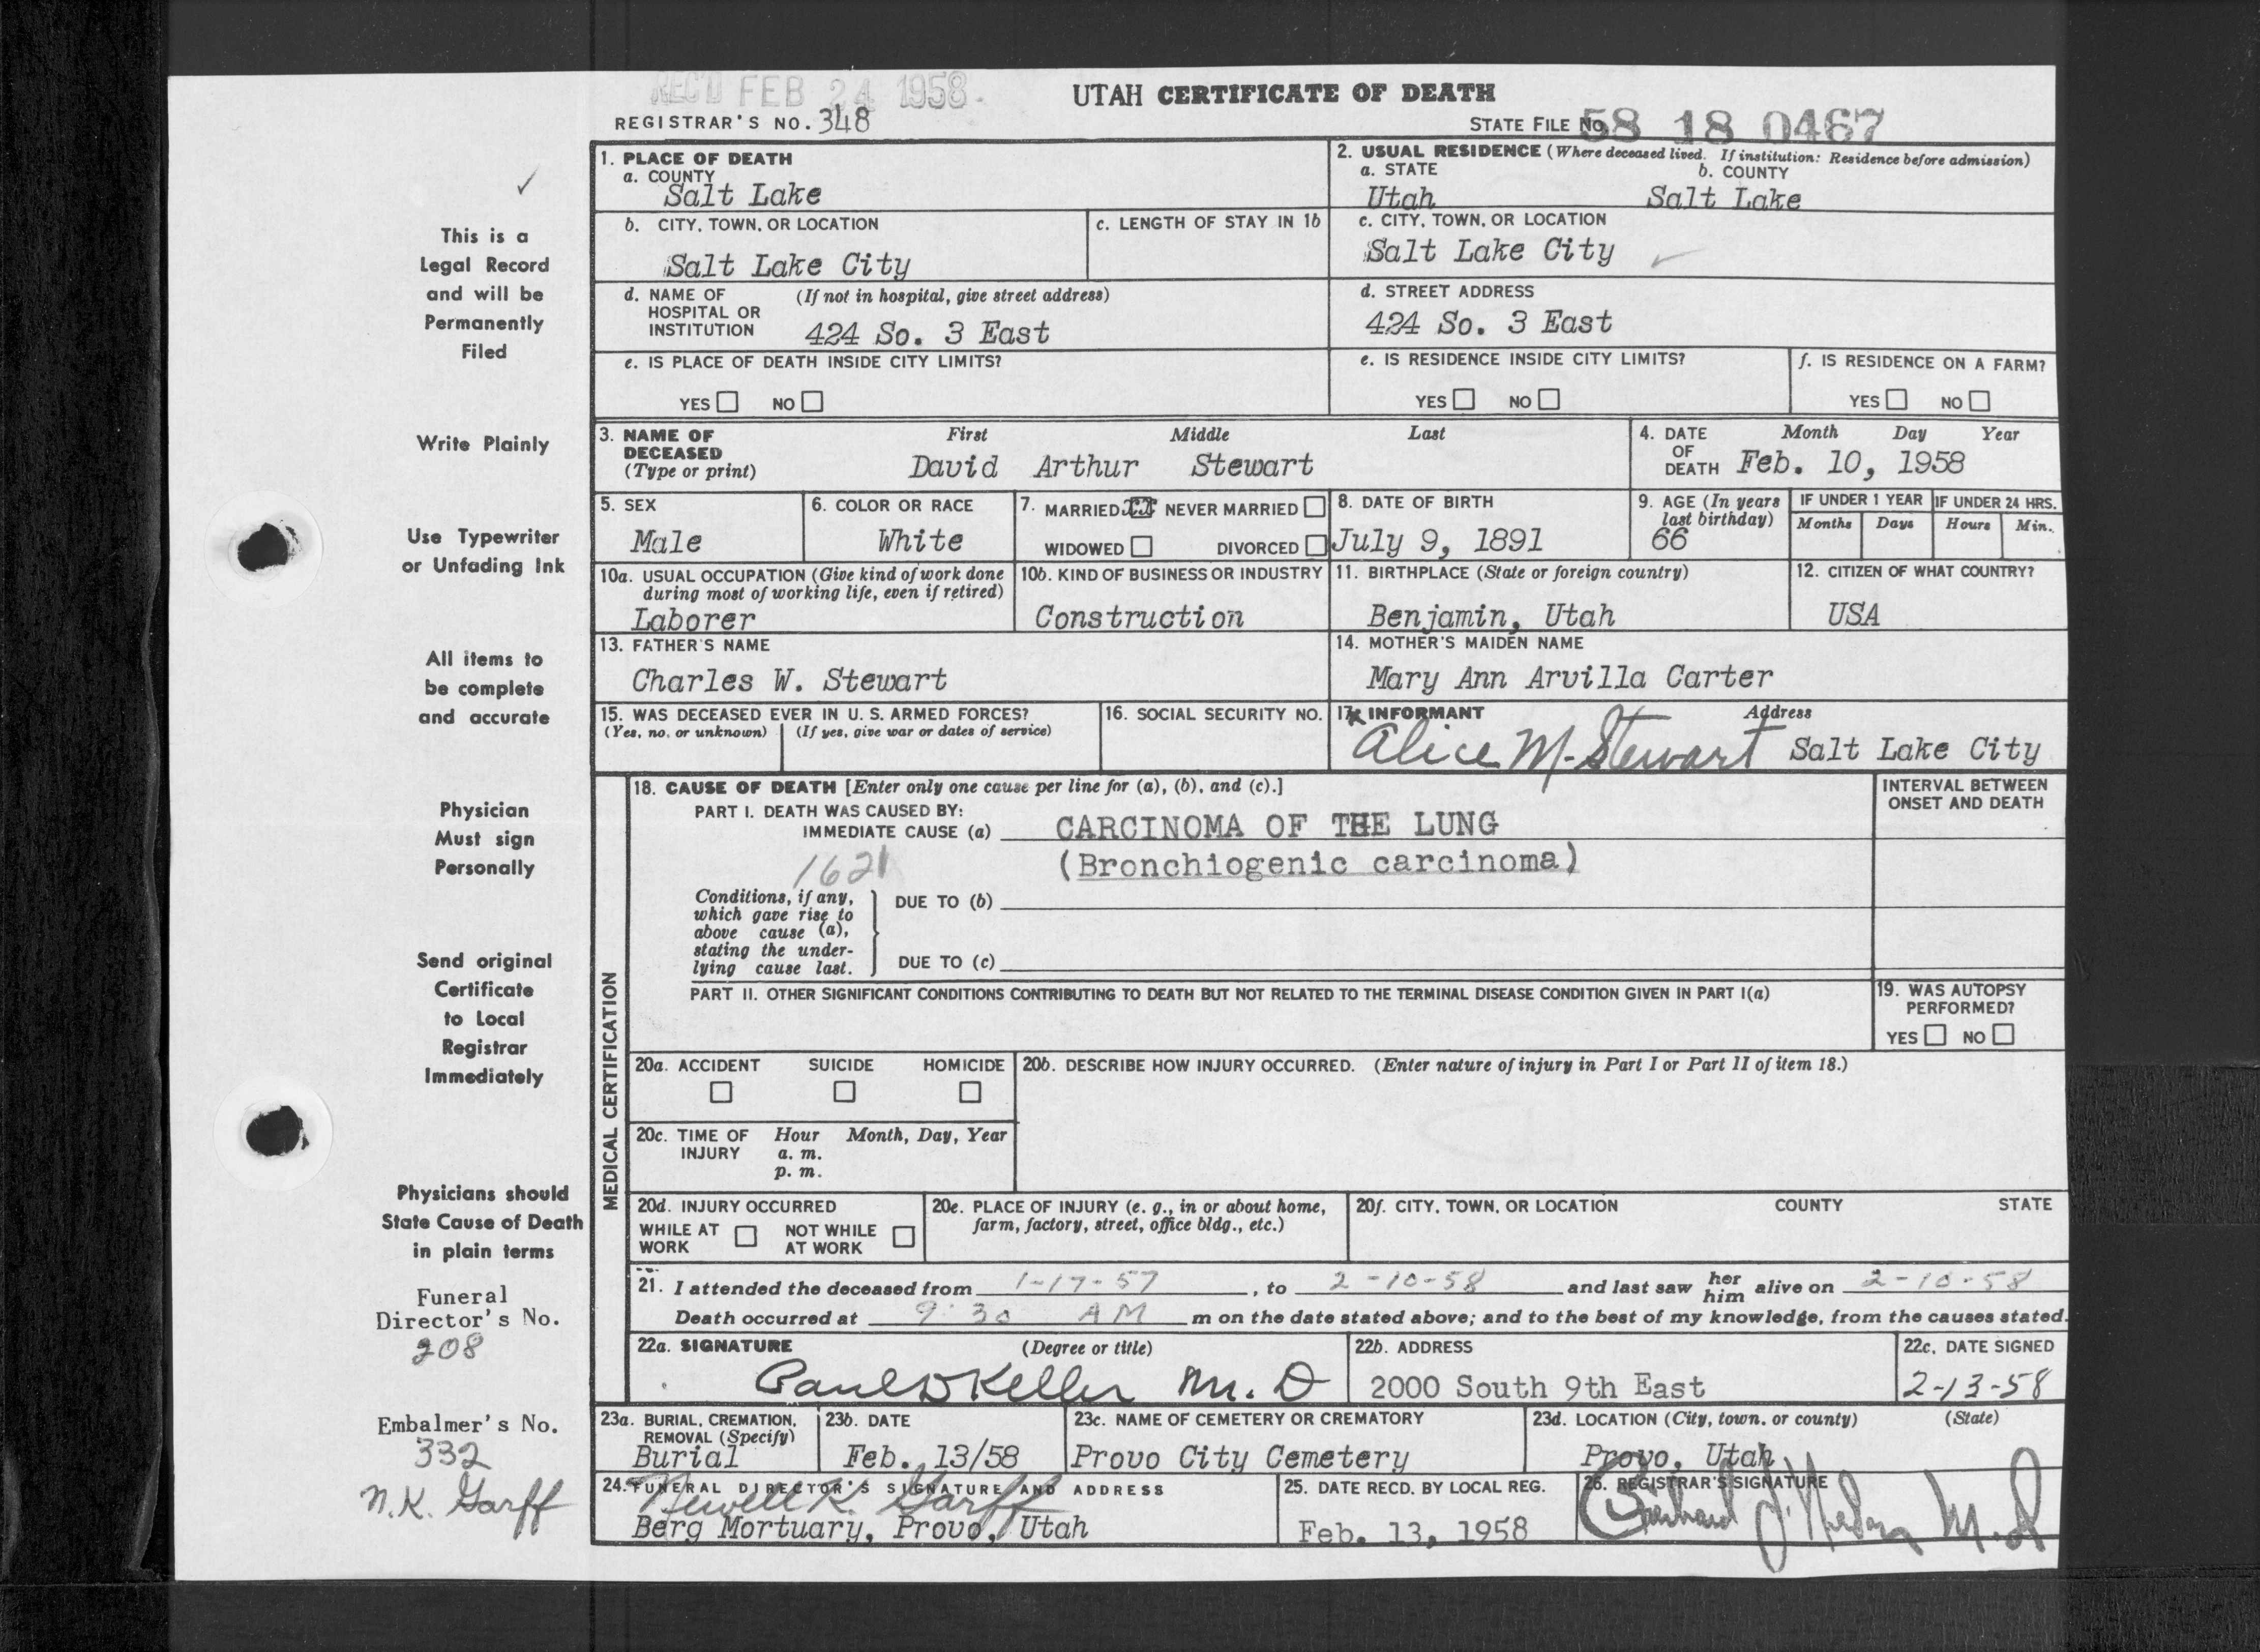 REC'D FEB 24 1958
UTAH CERTIFICATE OF DEATH
REGISTRAR'S NO. 348
STATE FILE No. 58 18 0467
✓
This is a
Legal Record
and will be
Permanently
Filed
Write Plainly
Use Typewriter
or Unfading Ink
All items to
be complete
and accurate
Physician
Must sign
Personally
Send original
Certificate
to Local
Registrar
Immediately
Physicians should
State Cause of Death
in plain terms
Funeral
Director's No.
208
Embalmer's No.
332
N.K. Garff
1. PLACE OF DEATH
a. COUNTY
Salt Lake
b. CITY, TOWN, OR LOCATION
Salt Lake City
c. LENGTH OF STAY IN 1b
d. NAME OF (If not in hospital, give street address)
HOSPITAL OR
INSTITUTION 424 So. 3 East
e. IS PLACE OF DEATH INSIDE CITY LIMITS?
YES NO
2. USUAL RESIDENCE (Where deceased lived. If institution: Residence before admission)
a. STATE b. COUNTY
Utah Salt Lake
c. CITY, TOWN, OR LOCATION
Salt Lake City ✓
d. STREET ADDRESS
424 So. 3 East
e. IS RESIDENCE INSIDE CITY LIMITS?
YES NO
f. IS RESIDENCE ON A FARM?
YES NO
3. NAME OF First Middle Last
DECEASED
(Type or print) David Arthur Stewart
4. DATE Month Day Year
OF
DEATH Feb. 10, 1958
5. SEX
Male
6. COLOR OR RACE
White
7. MARRIED XX NEVER MARRIED
WIDOWED DIVORCED
8. DATE OF BIRTH
July 9, 1891
9. AGE (In years
last birthday)
66
IF UNDER 1 YEAR IF UNDER 24 HRS.
Months Days Hours Min.
10a. USUAL OCCUPATION (Give kind of work done
during most of working life, even if retired)
Laborer
10b. KIND OF BUSINESS OR INDUSTRY
Construction
11. BIRTHPLACE (State or foreign country)
Benjamin, Utah
12. CITIZEN OF WHAT COUNTRY?
USA
13. FATHER'S NAME
Charles W. Stewart
14. MOTHER'S MAIDEN NAME
Mary Ann Arvilla Carter
15. WAS DECEASED EVER IN U. S. ARMED FORCES?
(Yes, no, or unknown) (If yes, give war or dates of service)
16. SOCIAL SECURITY NO.
17. INFORMANT Address
Alice M. Stewart Salt Lake City
MEDICAL CERTIFICATION
18. CAUSE OF DEATH [Enter only one cause per line for (a), (b), and (c).]
PART I. DEATH WAS CAUSED BY:
IMMEDIATE CAUSE (a) CARCINOMA OF THE LUNG
1621 (Bronchiogenic carcinoma)
Conditions, if any,
which gave rise to
above cause (a),
stating the under-
lying cause last.
DUE TO (b)
DUE TO (c)
INTERVAL BETWEEN
ONSET AND DEATH
PART II. OTHER SIGNIFICANT CONDITIONS CONTRIBUTING TO DEATH BUT NOT RELATED TO THE TERMINAL DISEASE CONDITION GIVEN IN PART I(a)
19. WAS AUTOPSY
PERFORMED?
YES NO
20a. ACCIDENT SUICIDE HOMICIDE
20b. DESCRIBE HOW INJURY OCCURRED. (Enter nature of injury in Part I or Part II of item 18.)
20c. TIME OF Hour Month, Day, Year
INJURY a. m.
p. m.
20d. INJURY OCCURRED
WHILE AT NOT WHILE
WORK AT WORK
20e. PLACE OF INJURY (e. g., in or about home,
farm, factory, street, office bldg., etc.)
20f. CITY, TOWN, OR LOCATION COUNTY STATE
21. I attended the deceased from 1-17-57, to 2-10-58 and last saw her him alive on 2-10-58
Death occurred at 9:30 AM m on the date stated above; and to the best of my knowledge, from the causes stated.
22a. SIGNATURE (Degree or title)
Paul D Keller M. D
22b. ADDRESS
2000 South 9th East
22c. DATE SIGNED
2-13-58
23a. BURIAL, CREMATION,
REMOVAL (Specify)
Burial
23b. DATE
Feb. 13/58
23c. NAME OF CEMETERY OR CREMATORY
Provo City Cemetery
23d. LOCATION (City, town, or county) (State)
Provo, Utah
24. FUNERAL DIRECTOR'S SIGNATURE AND ADDRESS
Newell K. Garff
Berg Mortuary, Provo, Utah
25. DATE RECD. BY LOCAL REG.
Feb. 13, 1958
26. REGISTRAR'S SIGNATURE
M.D